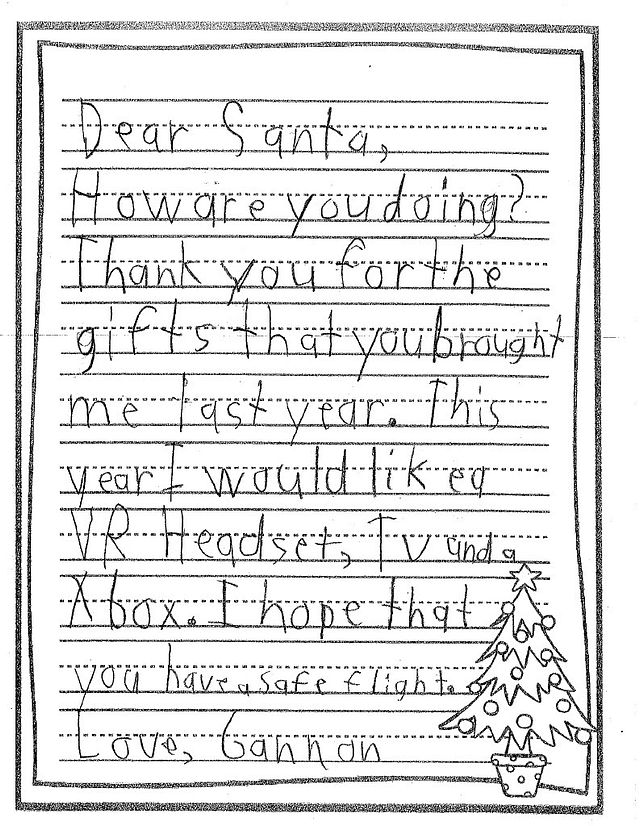 Dear Santa,
How are you doing?
Thank you for the
gifts that you brought
me last year. This
year I would like a
VR Headset, Tv and a
Xbox. I hope that
you have a safe flight.
Love, Gannon